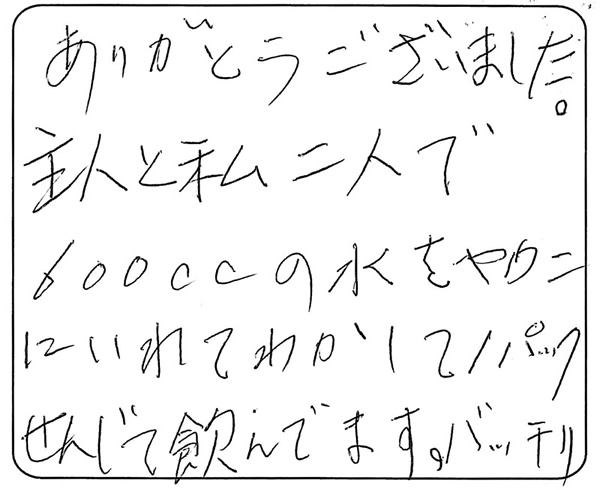 ありがとうございました。
主人と私二人で
600ccの水をヤカン
にいれてわかして1パック
せんじて飲んでます。バッチリ